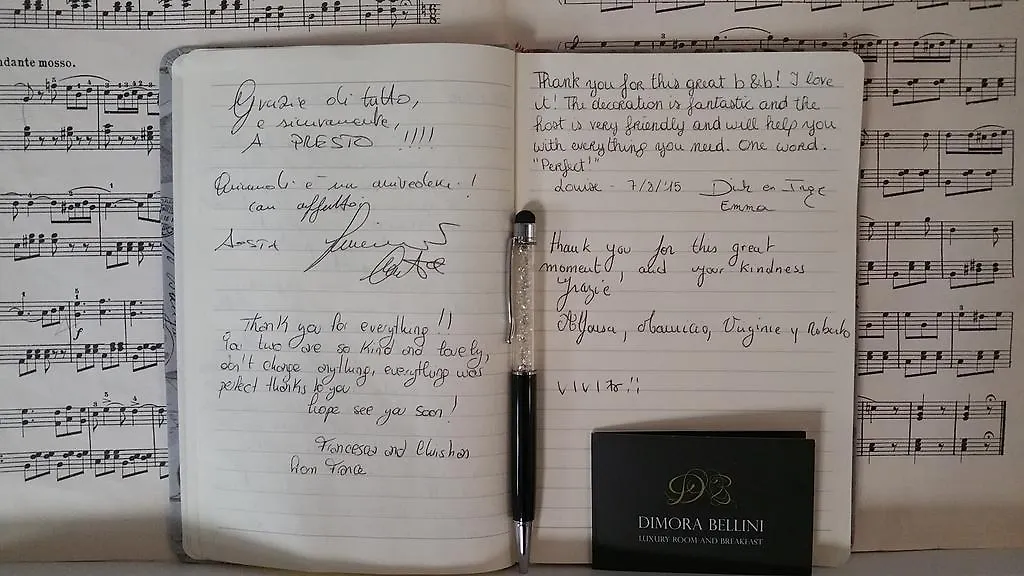 andante mosso.
Grazie di tutto,
e sicuramente,
A PRESTO !!!!
Quindi è un arrivederci !
con affetto,
Thank you for everything !!
You two are so kind and lovely,
don't change anything, everything was
perfect thanks to you
hope see you soon !
Francesca and Christian
from France
Thank you for this great b &b! I love
it! The decoration is fantastic and the
host is very friendly and will help you
with everything you need. One word.
"Perfect!"
Louise - 7/8/'15 Dirk en Inge
Emma
Thank you for this great
moment, and your kindness
Grazie
Mauricio, Virginie y Roberto
DB
DIMORA BELLINI
LUXURY ROOM AND BREAKFAST